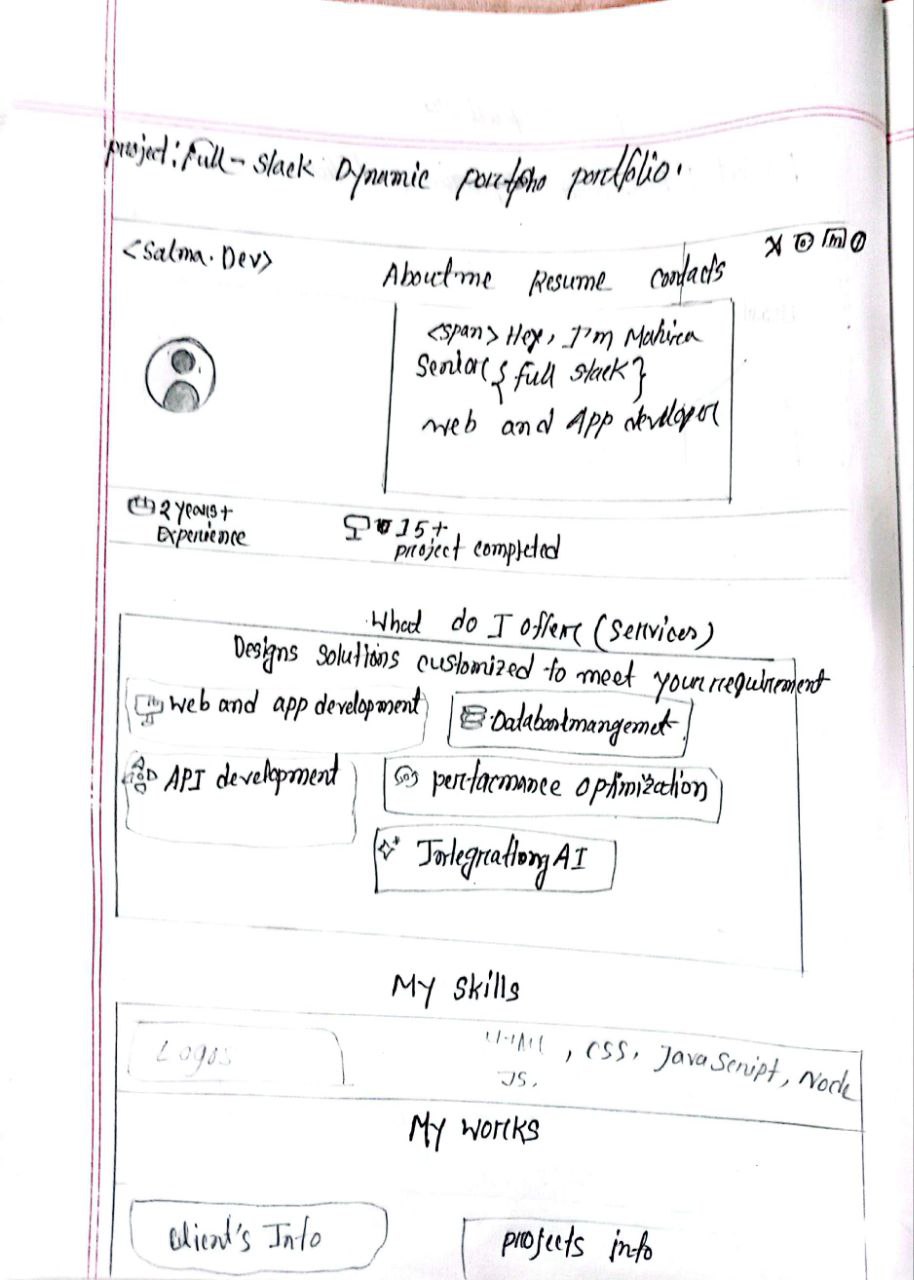 project: Full-stack Dynamic portfolio.
<Salma.Dev>
About me Resume Contacts
<span> Hey, I'm Mahira
Senior {full stack}
web and App developer
2 years+
Experience
15+
project completed
What do I offer (services)
Designs solutions customized to meet your requirement
web and app development
Databastmangemet
API development
performance optimization
AI
My skills
Logos
, CSS, JavaScript, Node
JS.
My works
client's Info
projects info